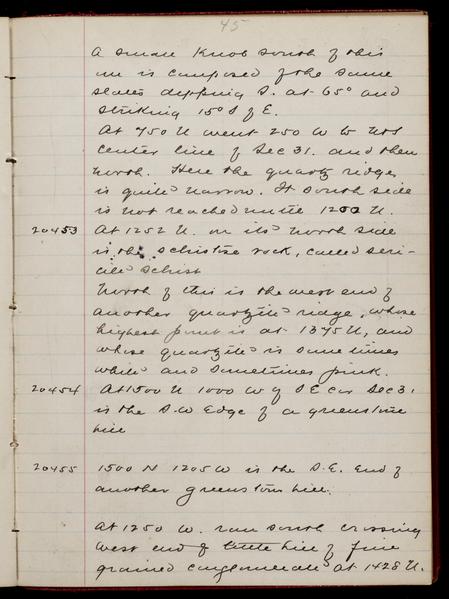 45
A small Knob south of this
one is composed of the same
slates dipping S. at 65° and
striking 15° S of E.
At 750 N went 250 W to N & S
center line of Sec 31. and then
north. Here the quartz ridge
is quite narrow. Its south side
is not reached until 1200 N.
20453 At 1252 N. on its north side
is the schistose rock, called seri-
cite schist
North of this is the west end of
another quartzite ridge, whose
highest point is at 1375 N, and
whose quartzite is sometimes
white and sometimes pink.
20454 At 1500 N 1000 W of S E cor Sec 31
is the S.W Edge of a greenstone
hill
20455 1500 N 1205 W is the S.E. End of
another greenstone hill.
At 1250 W. ran south crossing
west end of little hill of fine
grained conglomerate at 1428 N.